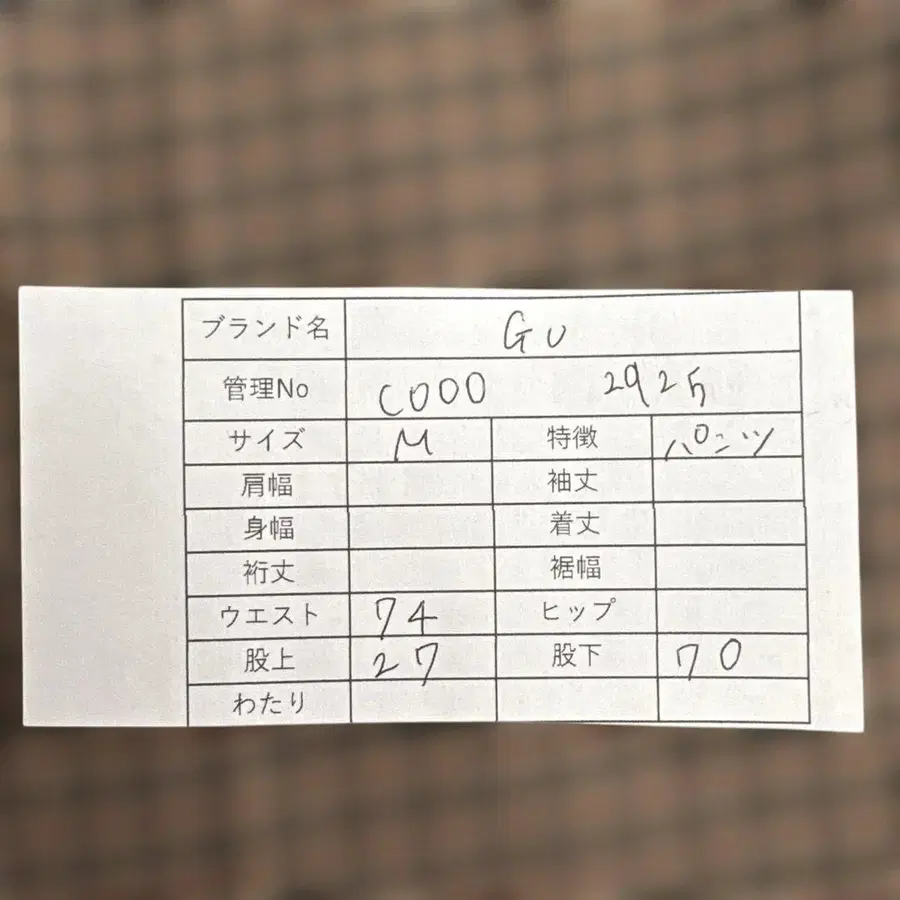 ブランド名 GU
管理No C000 2925
サイズ M 特徴 パンツ
肩幅 袖丈
身幅 着丈
裄丈 裾幅
ウエスト 74 ヒップ
股上 27 股下 70
わたり